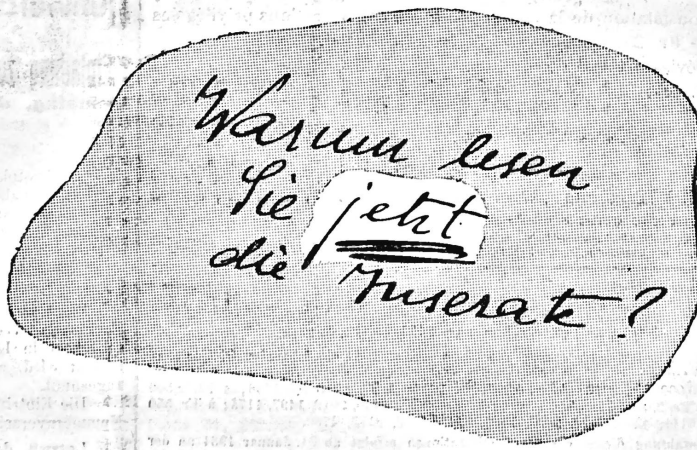 Warum lesen
Sie jetzt
die Inserate?